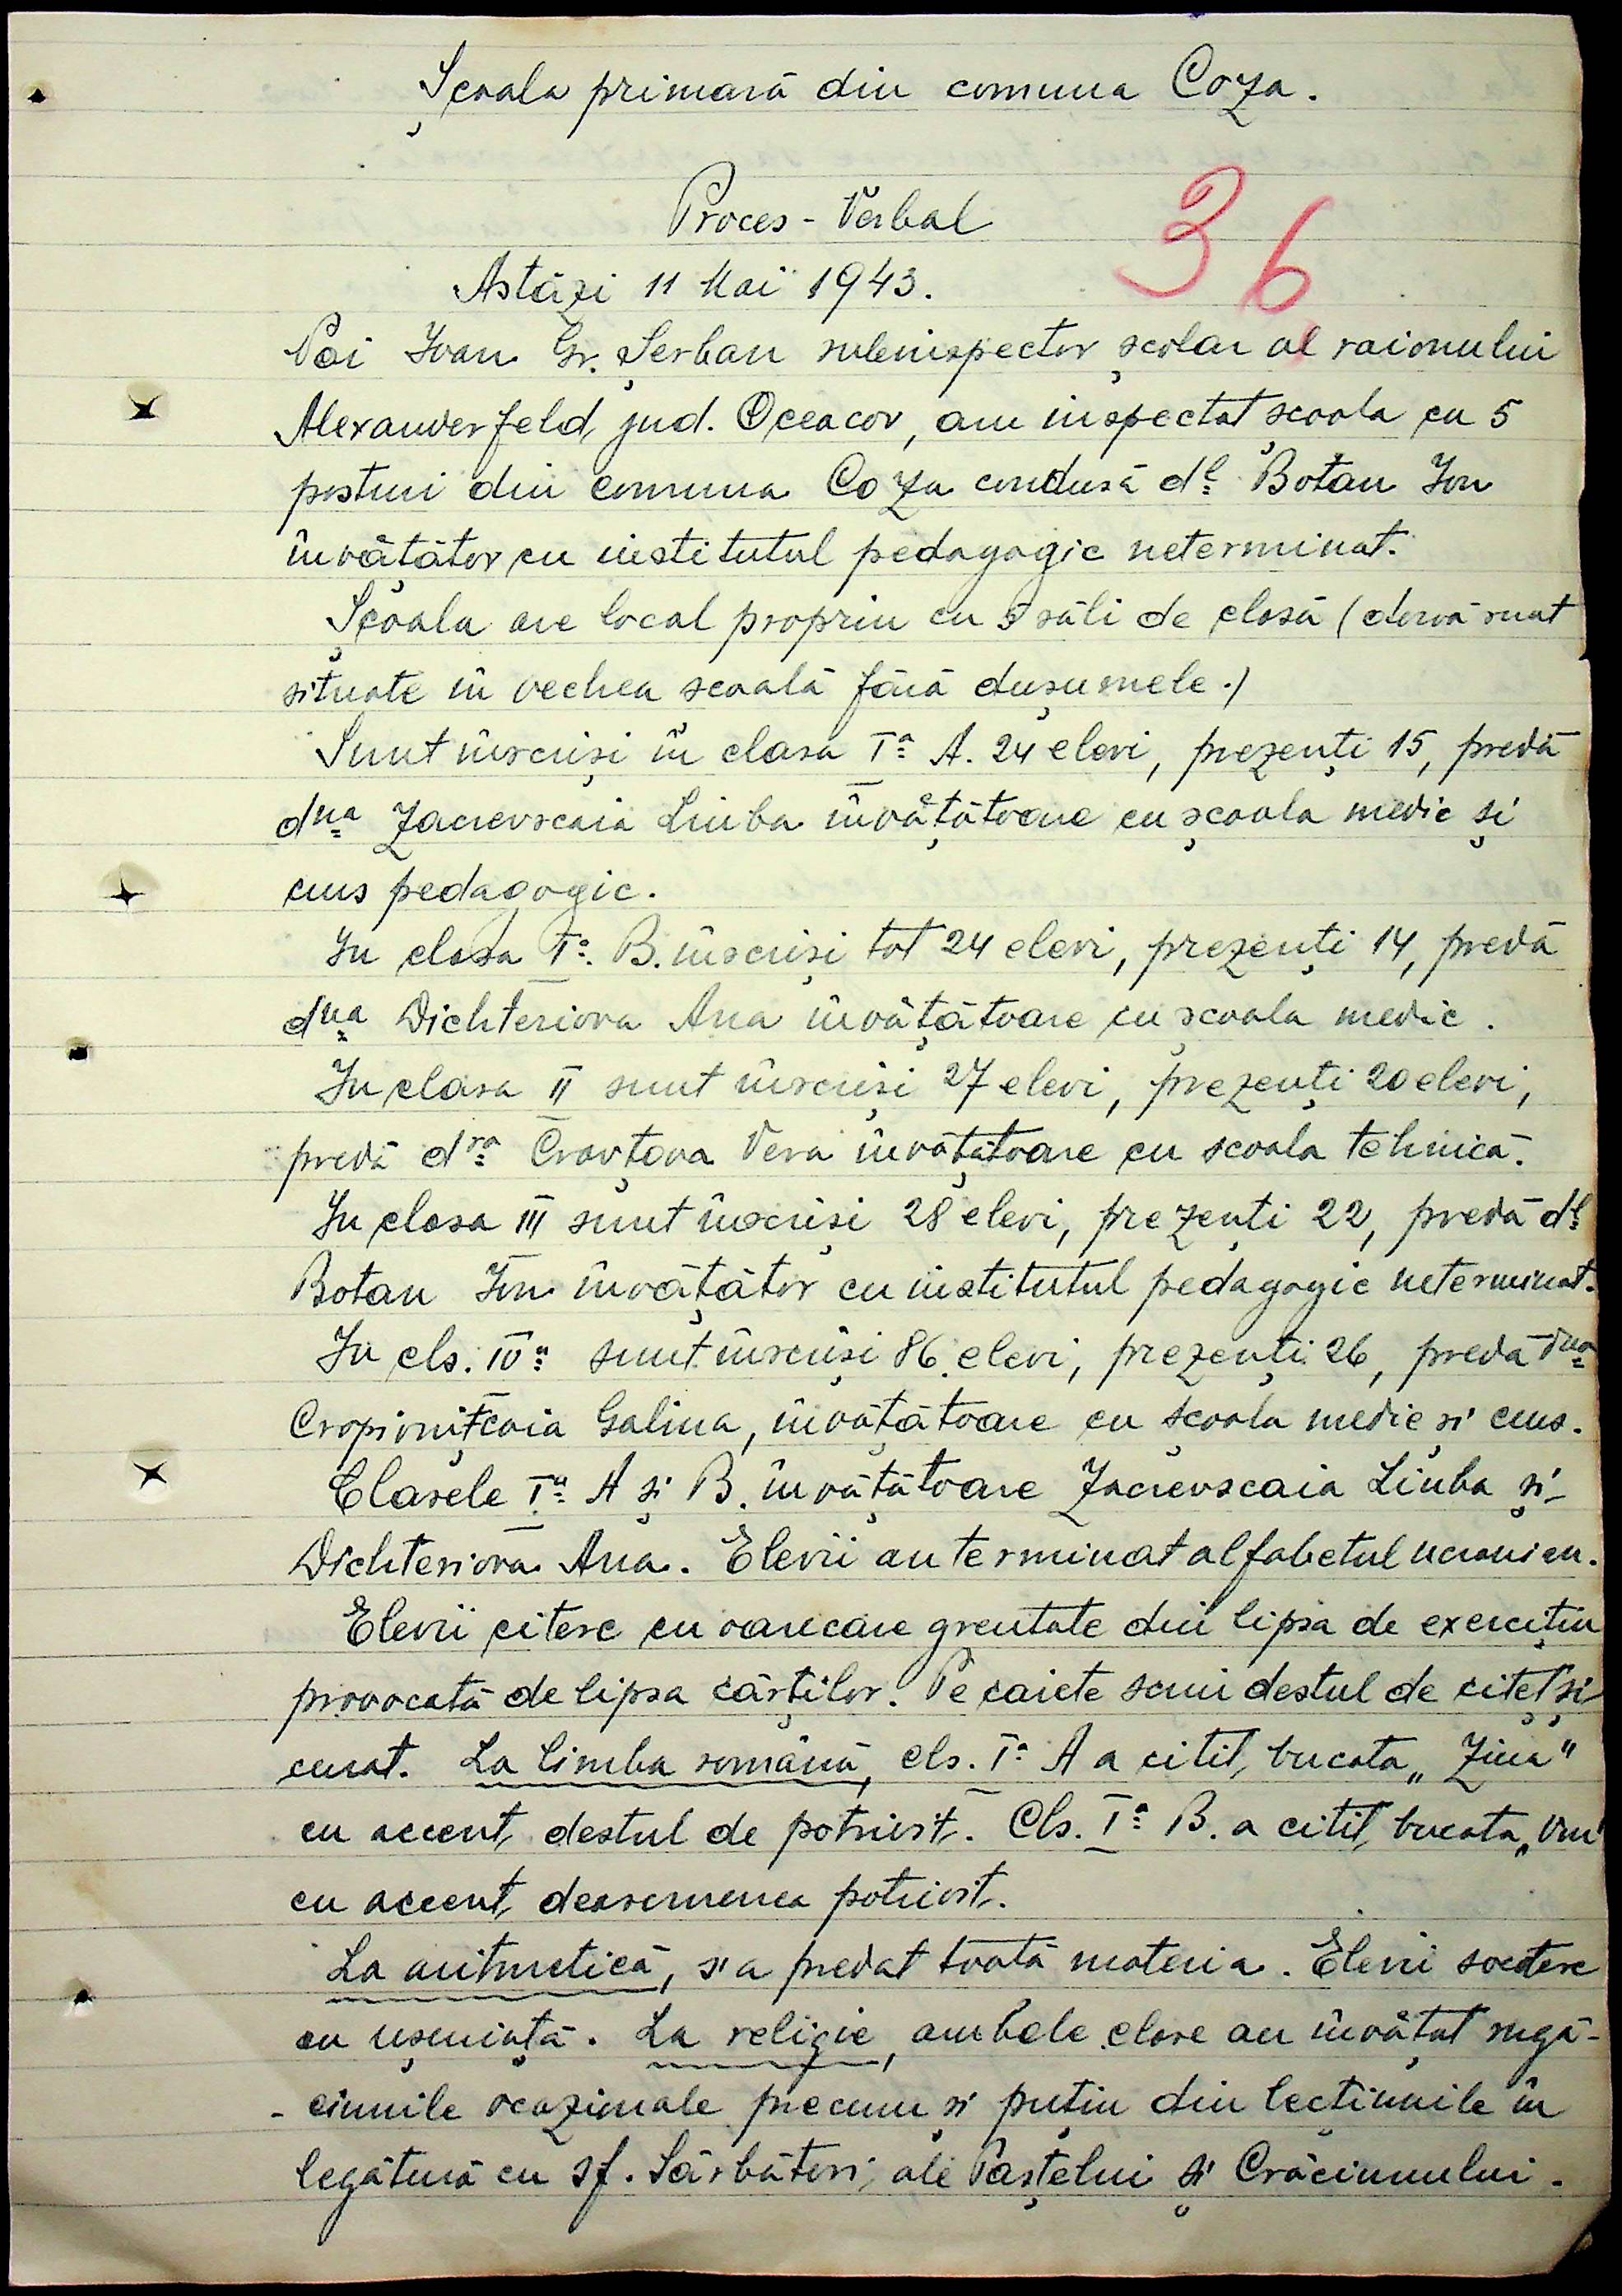 Școala primară din comuna Coza.
36
Proces-Verbal
Astăzi 11 Mai 1943.
Noi Ioan Gr. Șerban subinspector școlar al raionului
Alexanderfeld, jud. Oceacov, am inspectat școala cu 5
posturi din comuna Coza condusă dl Botan Ion
învățător cu institutul pedagogic neterminat.
Școala are local propriu cu 5 săli de clasă (două sunt
situate în vechea scoală fără dușumele.)
Sunt înscriși în clasa Ia A. 24 elevi, prezenți 15, predă
dna Zacrevscaia Liuba învățătoare cu școala medie și
curs pedagogic.
In clasa Ia B. înscriși tot 24 elevi, prezenți 14, predă
dna Dichteriova Ana învățătoare cu școala medie.
In clasa II sunt înscriși 27 elevi, prezenți 20 elevi,
predă dra Cravțova Vera învățătoare cu scoala tehnică.
In clasa III sunt înscriși 28 elevi, prezenți 22, predă dl
Botan Ion învățător cu institutul pedagogic neterminat.
In cls. IVa sunt înscriși 86 elevi, prezenți 26, predă dna
Cropivnițcaia Galina, învățătoare cu școala medie și curs.
Clasele Ia A și B. învățătoare Zacrevscaia Liuba și
Dichteriova Ana. Elevii au terminat alfabetul ucrainien.
Elevii citesc cu oarecare greutate din lipsa de exercițiu
provocată de lipsa cărților. Pe caiete scriu destul de citeț și
curat. La limba română, cls. Ia A a citit, bucata „Ziua"
cu accent, destul de potrivit. Cls. Ia B. a citit, bucata
cu accent, deasemenea potrivit.
La aritmetică, s'a predat toată materia. Elevii socotesc
cu ușurință. La religie, ambele clase au învățat rugă-
- ciunile ocazionale precum și puțin din lecțiunile în
legătură cu sf. Sărbători, ale Paștelui și Crăciunului.